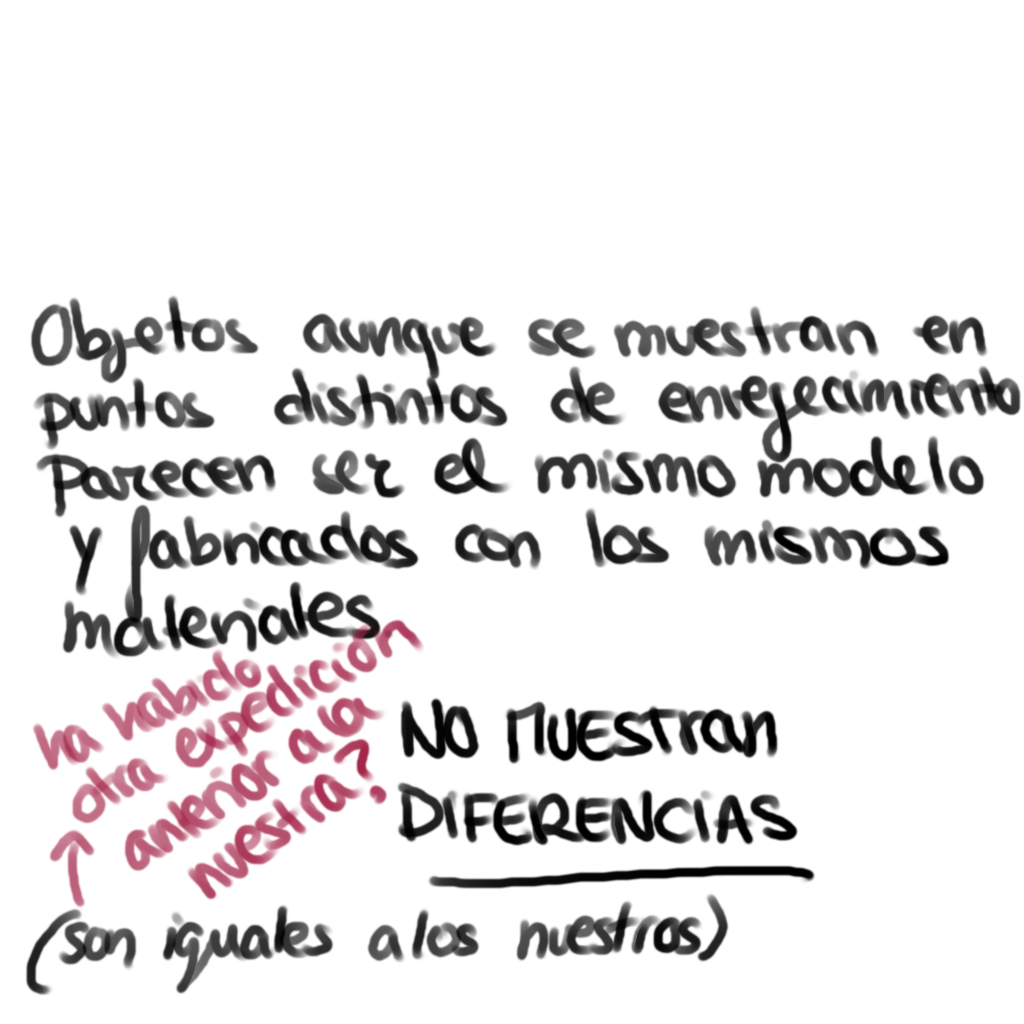 Objetos aunque se muestran en
puntos distintos de envejecimiento
Parecen ser el mismo modelo
y fabricados con los mismos
materiales
ha habido
otra expedición
anterior a la
nuestra?
NO MUESTRAN
DIFERENCIAS
(son iguales a los nuestros)